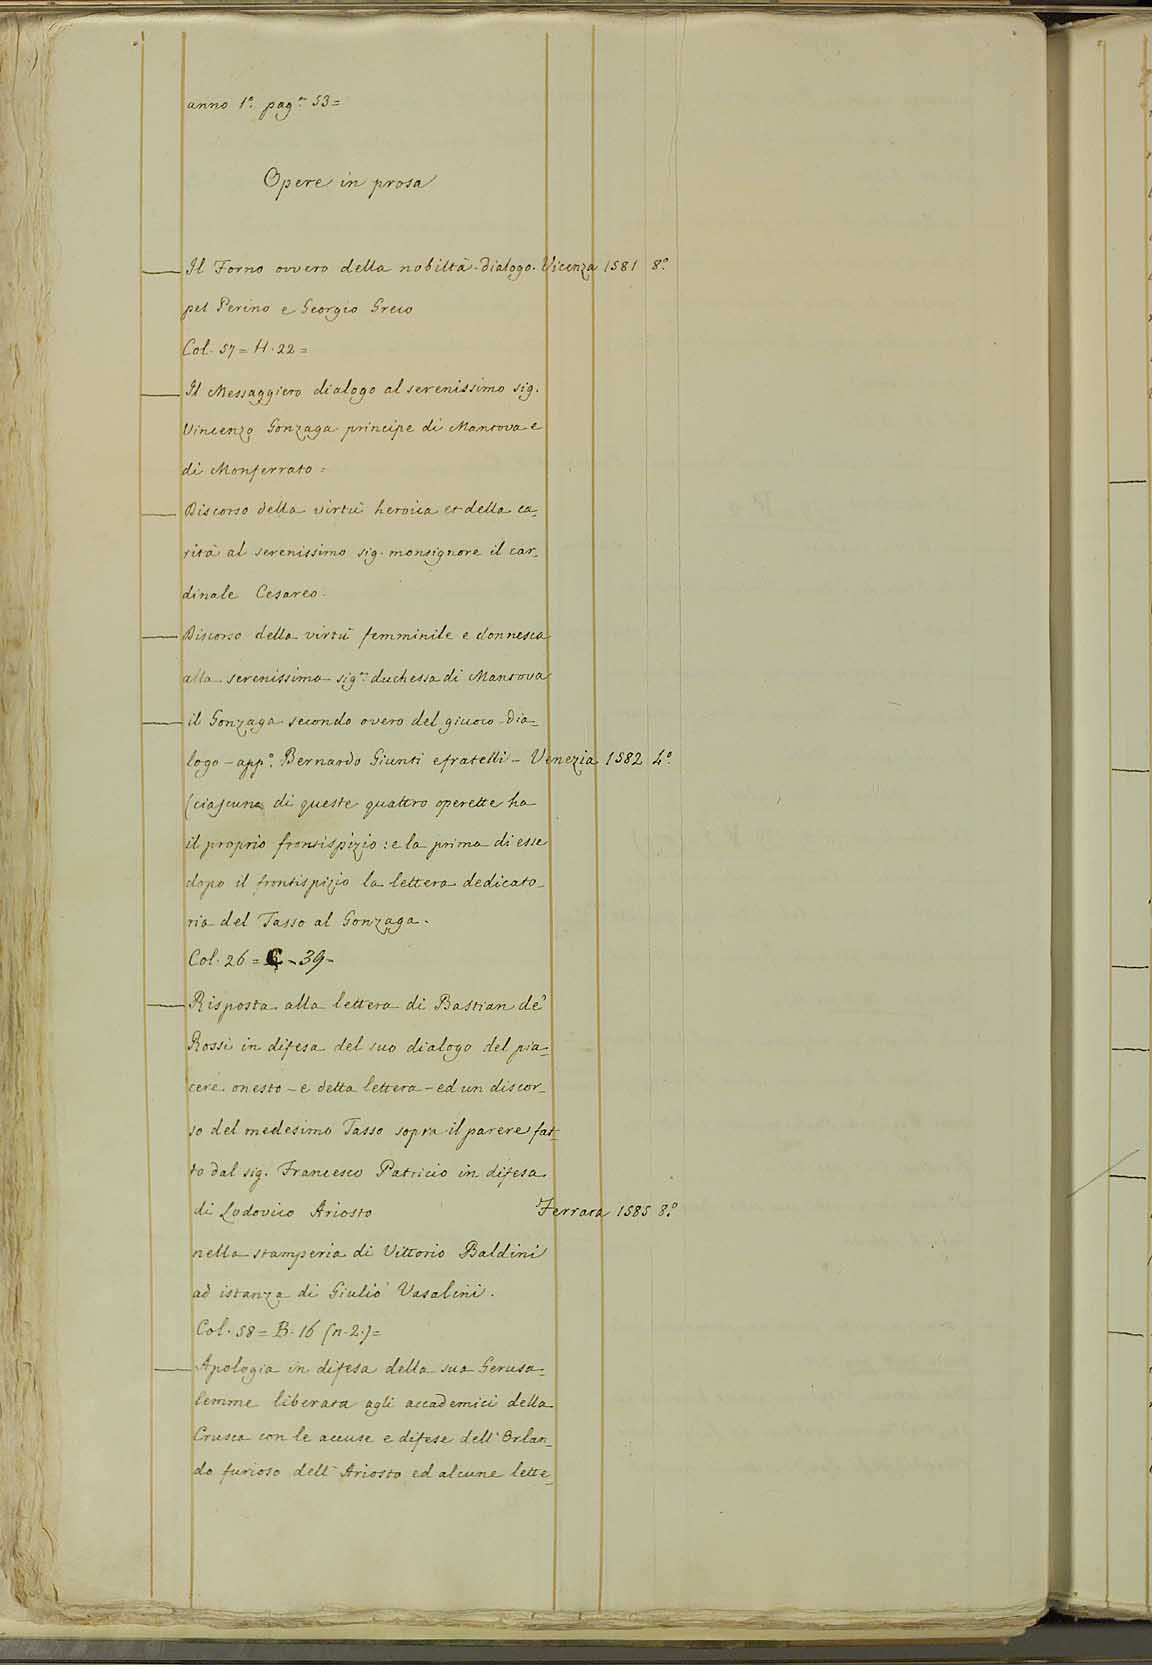 anno 1.º pag.ª 53 =
Opere in prosa
— Il Forno ovvero della nobiltà - dialogo. Vicenza 1581 8.º
pel Perino e Georgio Greco
Col. 57 = H. 22 =
— Il Messaggiero dialogo al serenissimo sig.
Vincenzo Gonzaga principe di Mantova e
di Monferrato =
— Discorso della virtù heroica et della ca-
rità al serenissimo sig. monsignore il car-
dinale Cesareo -
— Discorso della virtù femminile e donnesca
alla serenissima sig.ra duchessa di Mantova
— il Gonzaga secondo overo del giuoco - dia-
logo - app.º Bernardo Giunti e fratelli - Venezia 1582 4.º
(ciascuna di queste quattro operette ha
il proprio frontispizio: e la prima di esse
dopo il frontispizio la lettera dedicato-
ria del Tasso al Gonzaga.
Col. 26 = C - 39 -
— Risposta alla lettera di Bastian de'
Rossi in difesa del suo dialogo del pia-
cere onesto - e detta lettera - ed un discor-
so del medesimo Tasso sopra il parere fat-
to dal sig. Francesco Patricio in difesa
di Lodovico Ariosto Ferrara 1585 8.º
nella stamperia di Vittorio Baldini
ad istanza di Giulio Vasalini.
Col. 58 = B. 16 (n. 2.) =
— Apologia in difesa della sua Gerusa-
lemme liberata agli accademici della
Crusca con le accuse e difese dell' Orlan-
do furioso dell' Ariosto ed alcune lette-